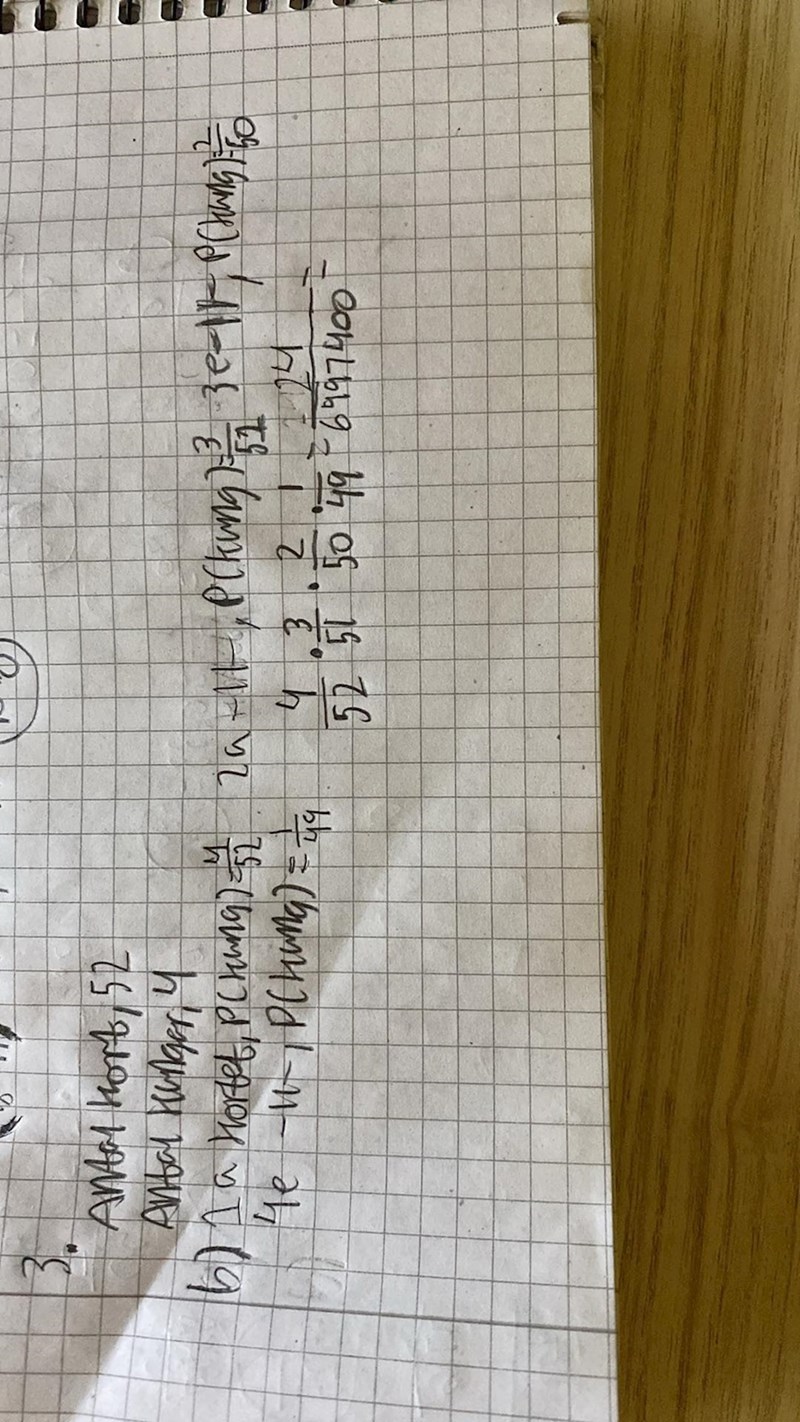 3.
Antal kort, 52
Antal kungar, 4
b) 1a kortet, P(kung)=4/52 2a -11-, P(kung)=3/51 3e -11-, P(kung)=2/50
4e -11-, P(kung)=1/49
4/52 · 3/51 · 2/50 · 1/49 = 24/6497400 =